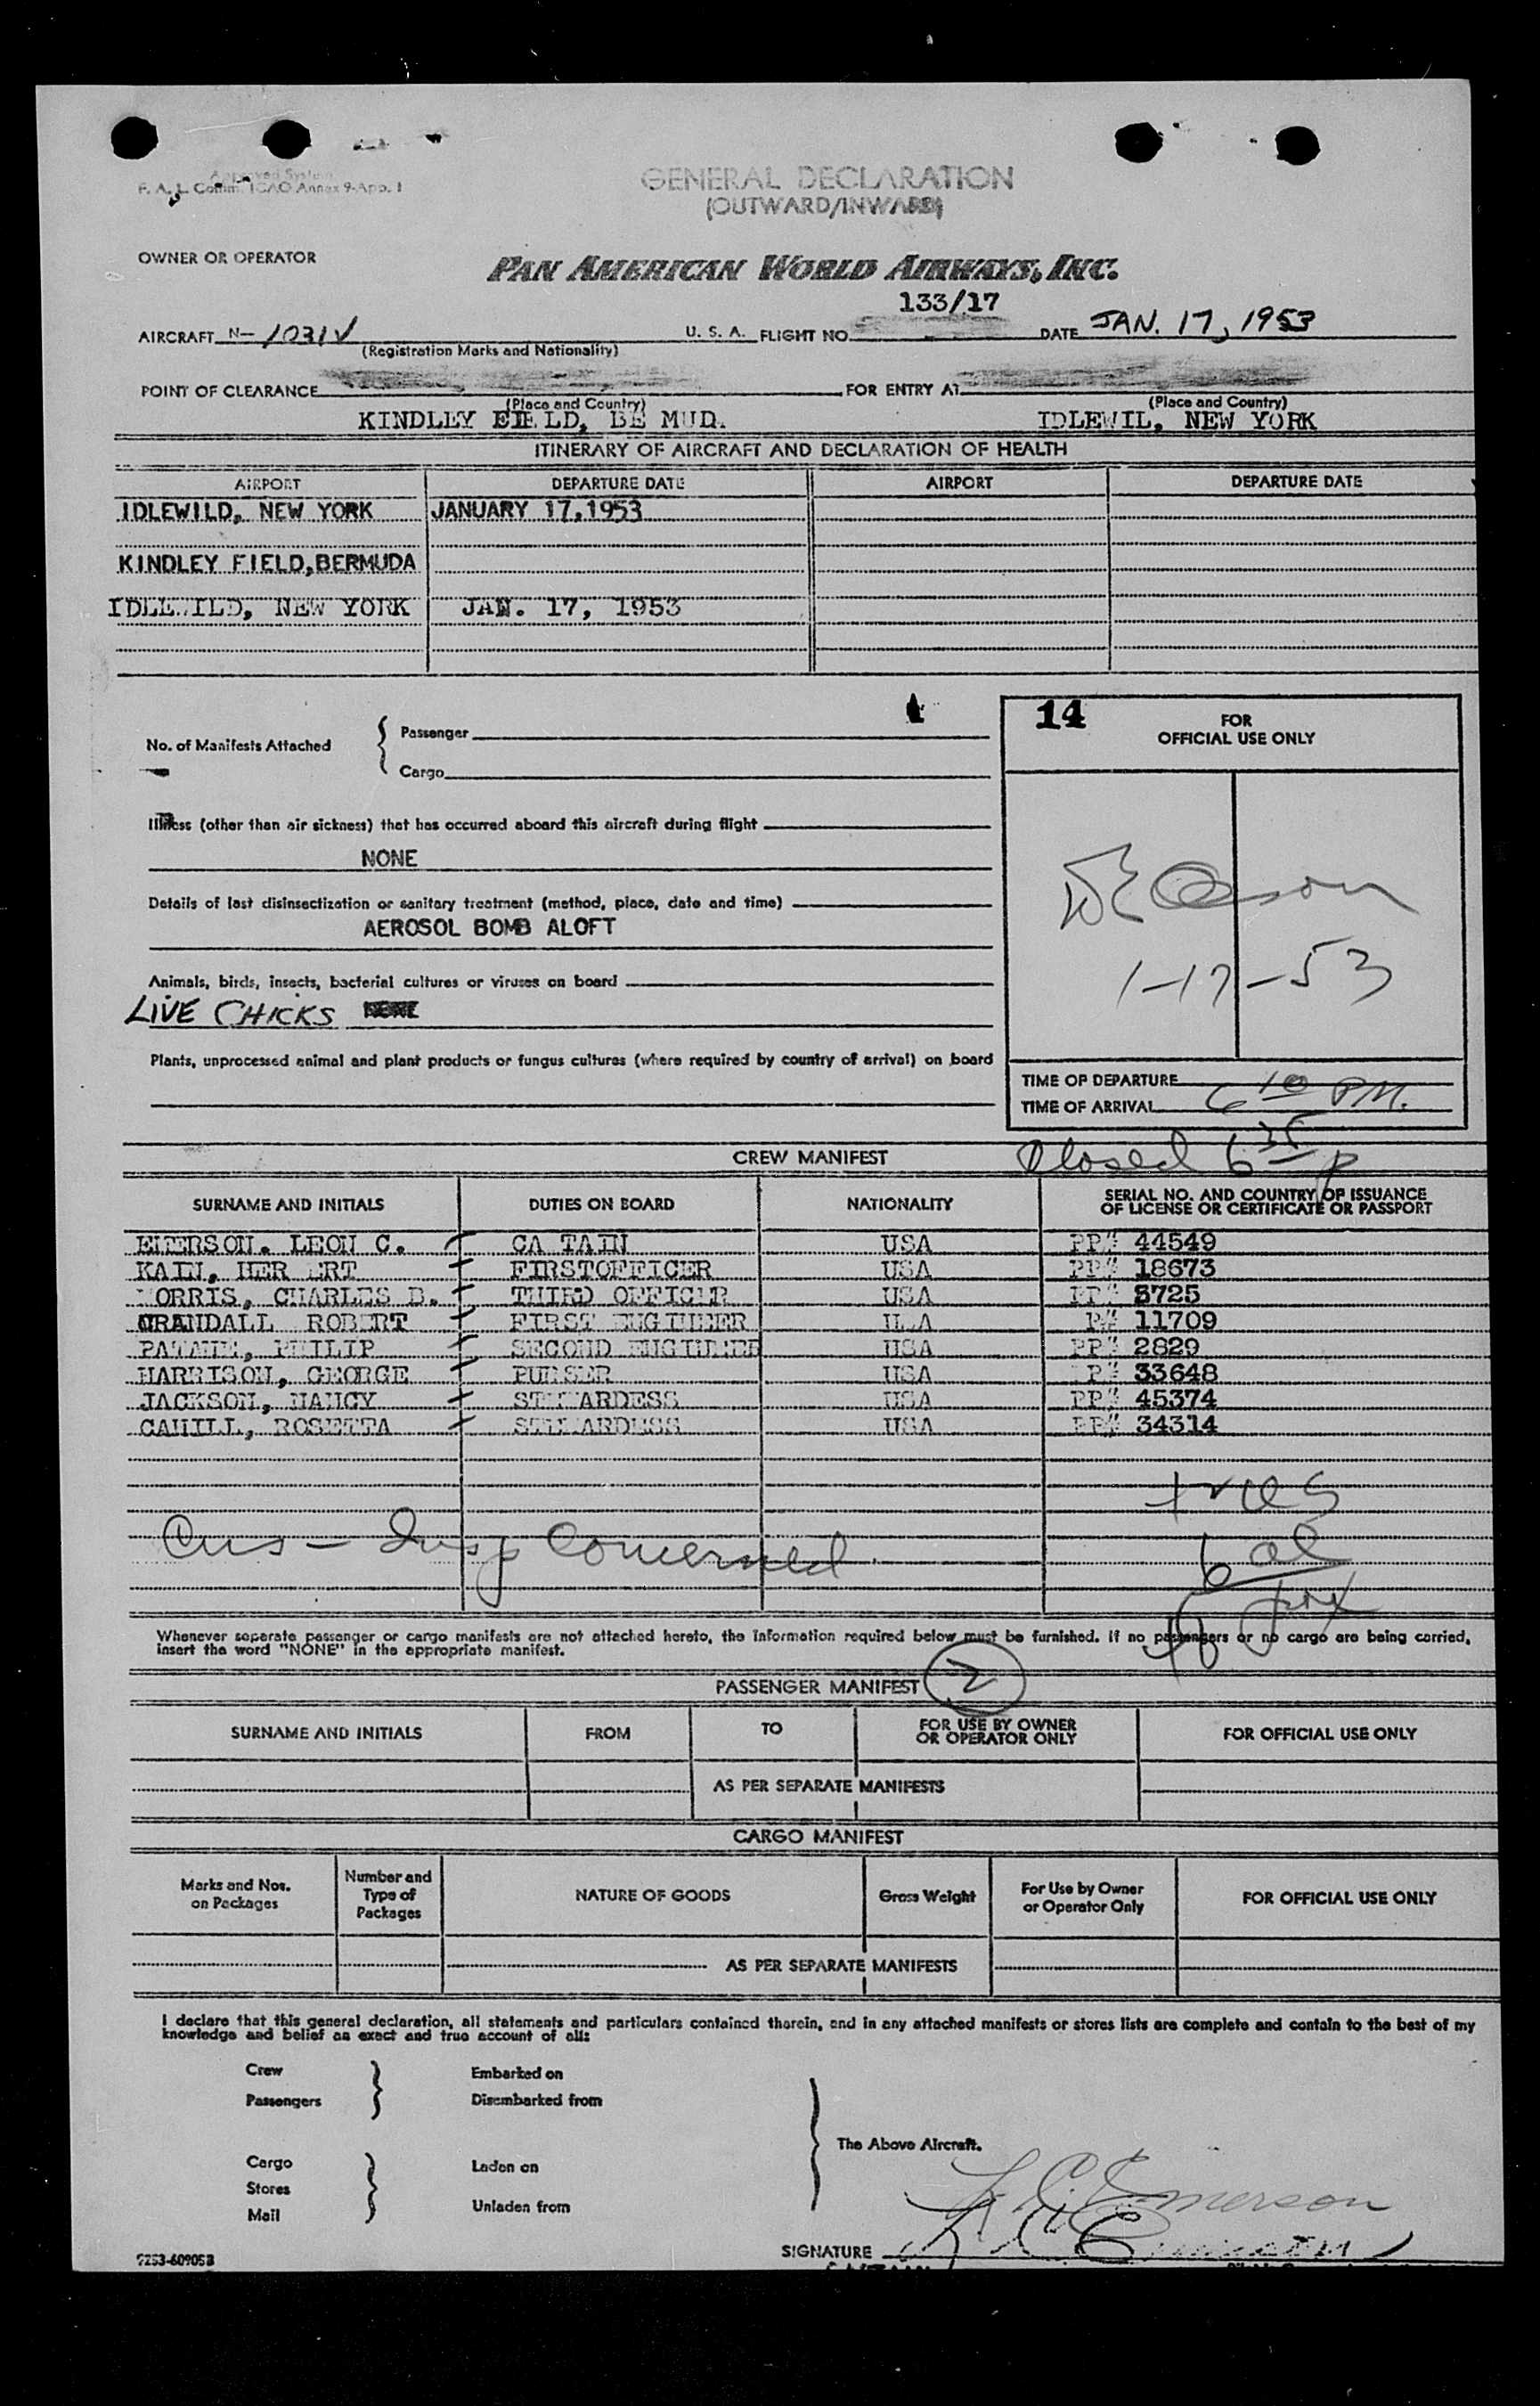 Approved System
F. A. L. Comm. ICAO Annex 9-App. 1
GENERAL DECLARATION
(OUTWARD/INWARD)
OWNER OR OPERATOR
PAN AMERICAN WORLD AIRWAYS, INC.
133/17
AIRCRAFT N-1031V U. S. A. FLIGHT NO. DATE JAN. 17, 1953
(Registration Marks and Nationality)
POINT OF CLEARANCE FOR ENTRY AT
(Place and Country) (Place and Country)
KINDLEY FIELD, BE MUD. IDLEWIL, NEW YORK
ITINERARY OF AIRCRAFT AND DECLARATION OF HEALTH
AIRPORT DEPARTURE DATE AIRPORT DEPARTURE DATE
IDLEWILD, NEW YORK JANUARY 17,1953
KINDLEY FIELD,BERMUDA
IDLEWILD, NEW YORK JAN. 17, 1953
14 FOR
OFFICIAL USE ONLY
No. of Manifests Attached
Passenger
Cargo
Illness (other than air sickness) that has occurred aboard this aircraft during flight
NONE
Details of last disinsectization or sanitary treatment (method, place, date and time)
AEROSOL BOMB ALOFT
1-17-53
Animals, birds, insects, bacterial cultures or viruses on board
LIVE CHICKS
Plants, unprocessed animal and plant products or fungus cultures (where required by country of arrival) on board
TIME OF DEPARTURE
TIME OF ARRIVAL 6 10 P.M.
CREW MANIFEST Closed 6 35 p
SURNAME AND INITIALS DUTIES ON BOARD NATIONALITY SERIAL NO. AND COUNTRY OF ISSUANCE
OF LICENSE OR CERTIFICATE OR PASSPORT
EMERSON. LEON C. CA TAIN USA PP# 44549
KAIN, HER ERT FIRSTOFFICER USA PP# 18673
ORRIS, CHARLES B. THIRD OFFICER USA PP# 3725
CRANDALL ROBERT FIRST ENGINEER U A P# 11709
PHILIP SECOND ENGINEER USA PP# 2829
HARRISON, GEORGE PURSER USA P# 33648
JACKSON, NANCY STEWARDESS USA PP# 45374
CAHILL, ROSETTA STEWARDESS USA PP# 34314
Cus - Insp Concerned
Whenever separate passenger or cargo manifests are not attached hereto, the information required below must be furnished. If no passengers or no cargo are being carried,
insert the word "NONE" in the appropriate manifest.
PASSENGER MANIFEST 2
SURNAME AND INITIALS FROM TO FOR USE BY OWNER
OR OPERATOR ONLY FOR OFFICIAL USE ONLY
AS PER SEPARATE MANIFESTS
CARGO MANIFEST
Marks and Nos.
on Packages Number and
Type of
Packages NATURE OF GOODS Gross Weight For Use by Owner
or Operator Only FOR OFFICIAL USE ONLY
AS PER SEPARATE MANIFESTS
I declare that this general declaration, all statements and particulars contained therein, and in any attached manifests or stores lists are complete and contain to the best of my
knowledge and belief an exact and true account of all:
Crew Embarked on
Passengers Disembarked from
The Above Aircraft.
Cargo Laden on
Stores
Mail Unladen from
L. C. Emerson
SIGNATURE L C Emerson
9253-60905B